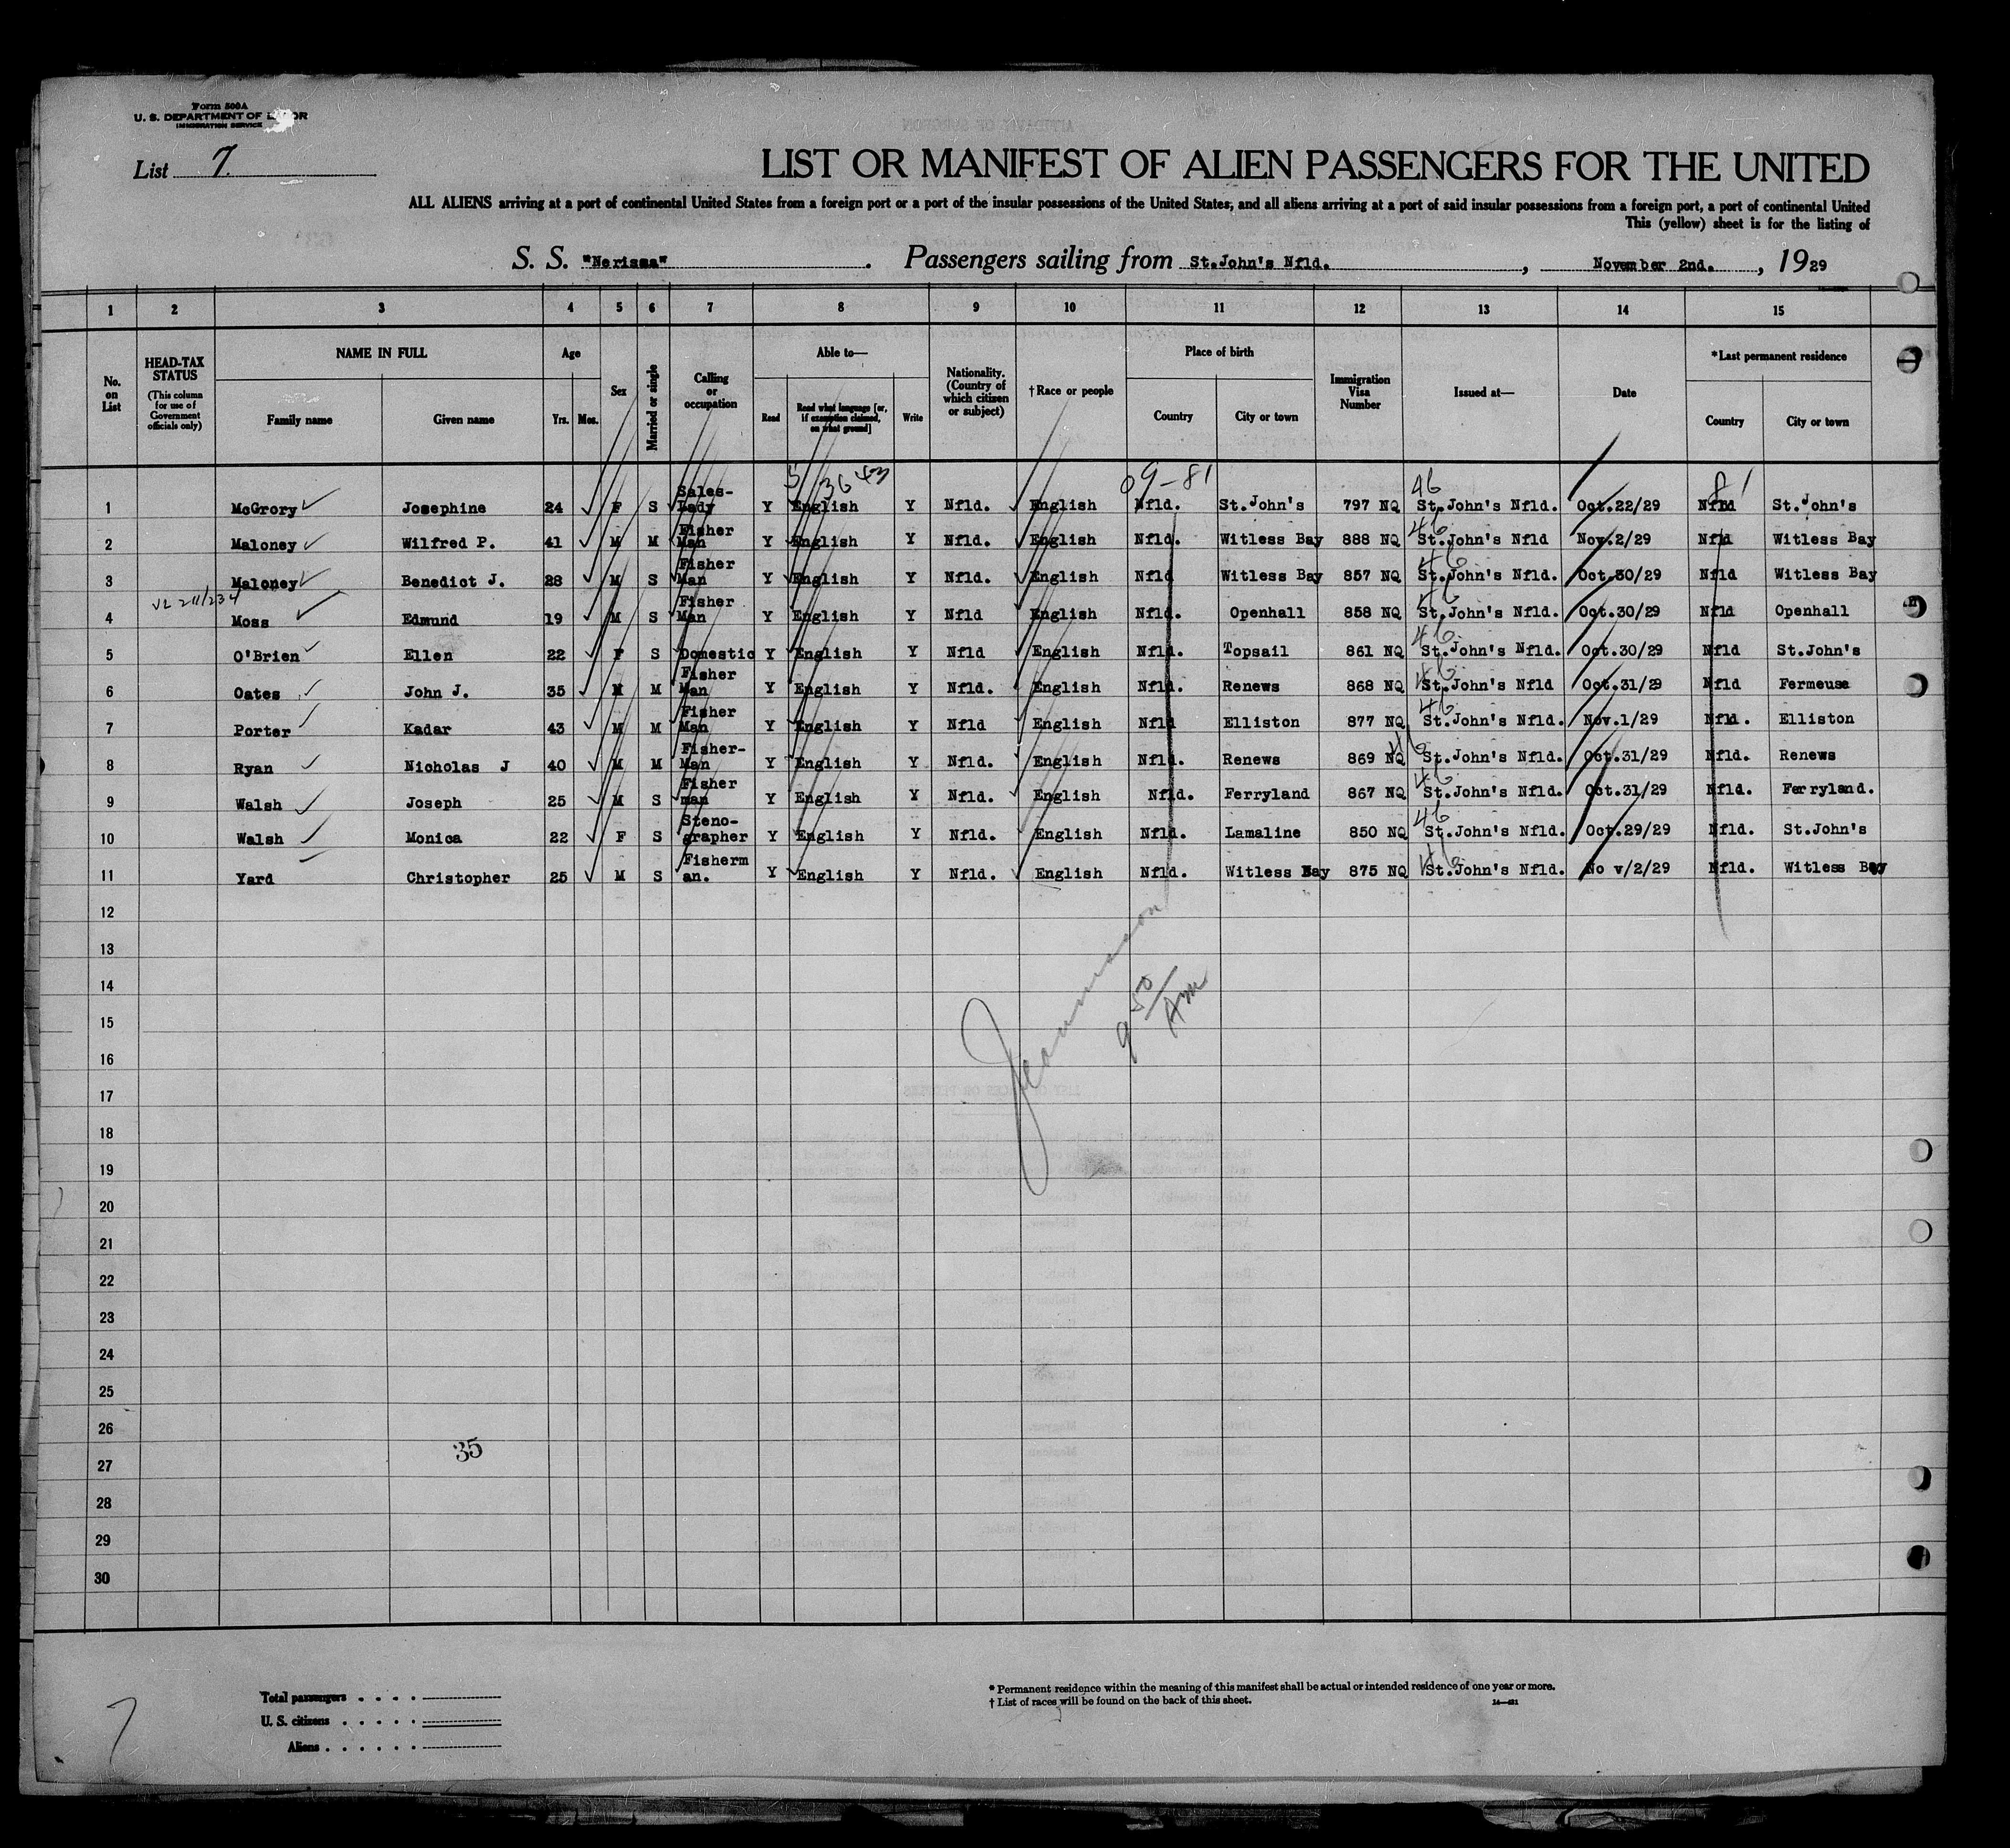 Form 500A
U. S. DEPARTMENT OF LABOR
IMMIGRATION SERVICE
List 7.
LIST OR MANIFEST OF ALIEN PASSENGERS FOR THE UNITED
ALL ALIENS arriving at a port of continental United States from a foreign port or a port of the insular possessions of the United States, and all aliens arriving at a port of said insular possessions from a foreign port, a port of continental United
This (yellow) sheet is for the listing of
S. S. "Nerissa". Passengers sailing from St.John's Nfld., November 2nd., 1929
1 2 3 4 5 6 7 8 9 10 11 12 13 14 15
No. on List
HEAD-TAX STATUS (This column for use of Government officials only)
NAME IN FULL Family name Given name
Age Yrs. Mos.
Sex
Married or single
Calling or occupation
Able to— Read Read what language [or, if exemption claimed, on what ground] Write
Nationality. (Country of which citizen or subject)
† Race or people
Place of birth Country City or town
Immigration Visa Number
Issued at—
Date
* Last permanent residence Country City or town
5 36 43 09-81 46 81
1 McGrory Josephine 24 F S Sales-Lady Y English Y Nfld. English Nfld. St.John's 797 NQ St.John's Nfld. Oct.22/29 Nfld St.John's
46
2 Maloney Wilfred P. 41 M M Fisher Man Y English Y Nfld. English Nfld. Witless Bay 888 NQ St.John's Nfld Nov.2/29 Nfld Witless Bay
46
3 Maloney Benedict J. 28 M S Fisher Man Y English Y Nfld. English Nfld Witless Bay 857 NQ St.John's Nfld. Oct.30/29 Nfld Witless Bay
46
4 Moss Edmund 19 M S Fisher Man Y English Y Nfld English Nfld. Openhall 858 NQ St.John's Nfld. Oct.30/29 Nfld Openhall
46
5 O'Brien Ellen 22 F S Domestic Y English Y Nfld English Nfld. Topsail 861 NQ St.John's Nfld. Oct.30/29 Nfld St.John's
46
6 Oates John J. 35 M M Fisher Man Y English Y Nfld. English Nfld. Renews 868 NQ St.John's Nfld Oct.31/29 Nfld Fermeuse
46
7 Porter Kadar 43 M M Fisher Man Y English Y Nfld English Nfld Elliston 877 NQ St.John's Nfld. Nov.1/29 Nfld. Elliston
46
8 Ryan Nicholas J 40 M M Fisher-Man Y English Y Nfld. English Nfld. Renews 869 NQ St.John's Nfld. Oct.31/29 Nfld. Renews
46
9 Walsh Joseph 25 M S Fisher man Y English Y Nfld. English Nfld. Ferryland 867 NQ St.John's Nfld. Oct.31/29 Nfld. Ferryland.
46
10 Walsh Monica 22 F S Steno-grapher Y English Y Nfld. English Nfld. Lamaline 850 NQ St.John's Nfld. Oct.29/29 Nfld. St.John's
46
11 Yard Christopher 25 M S Fisherm an. Y English Y Nfld. English Nfld. Witless Bay 875 NQ St.John's Nfld. No v/2/29 Nfld. Witless Bay
12
13
14
15
9 50/Am
16
17
18
19
20
21
22
23
24
25
26
35
27
28
29
30
Total passengers
U. S. citizens
Aliens
7
* Permanent residence within the meaning of this manifest shall be actual or intended residence of one year or more.
† List of races will be found on the back of this sheet.